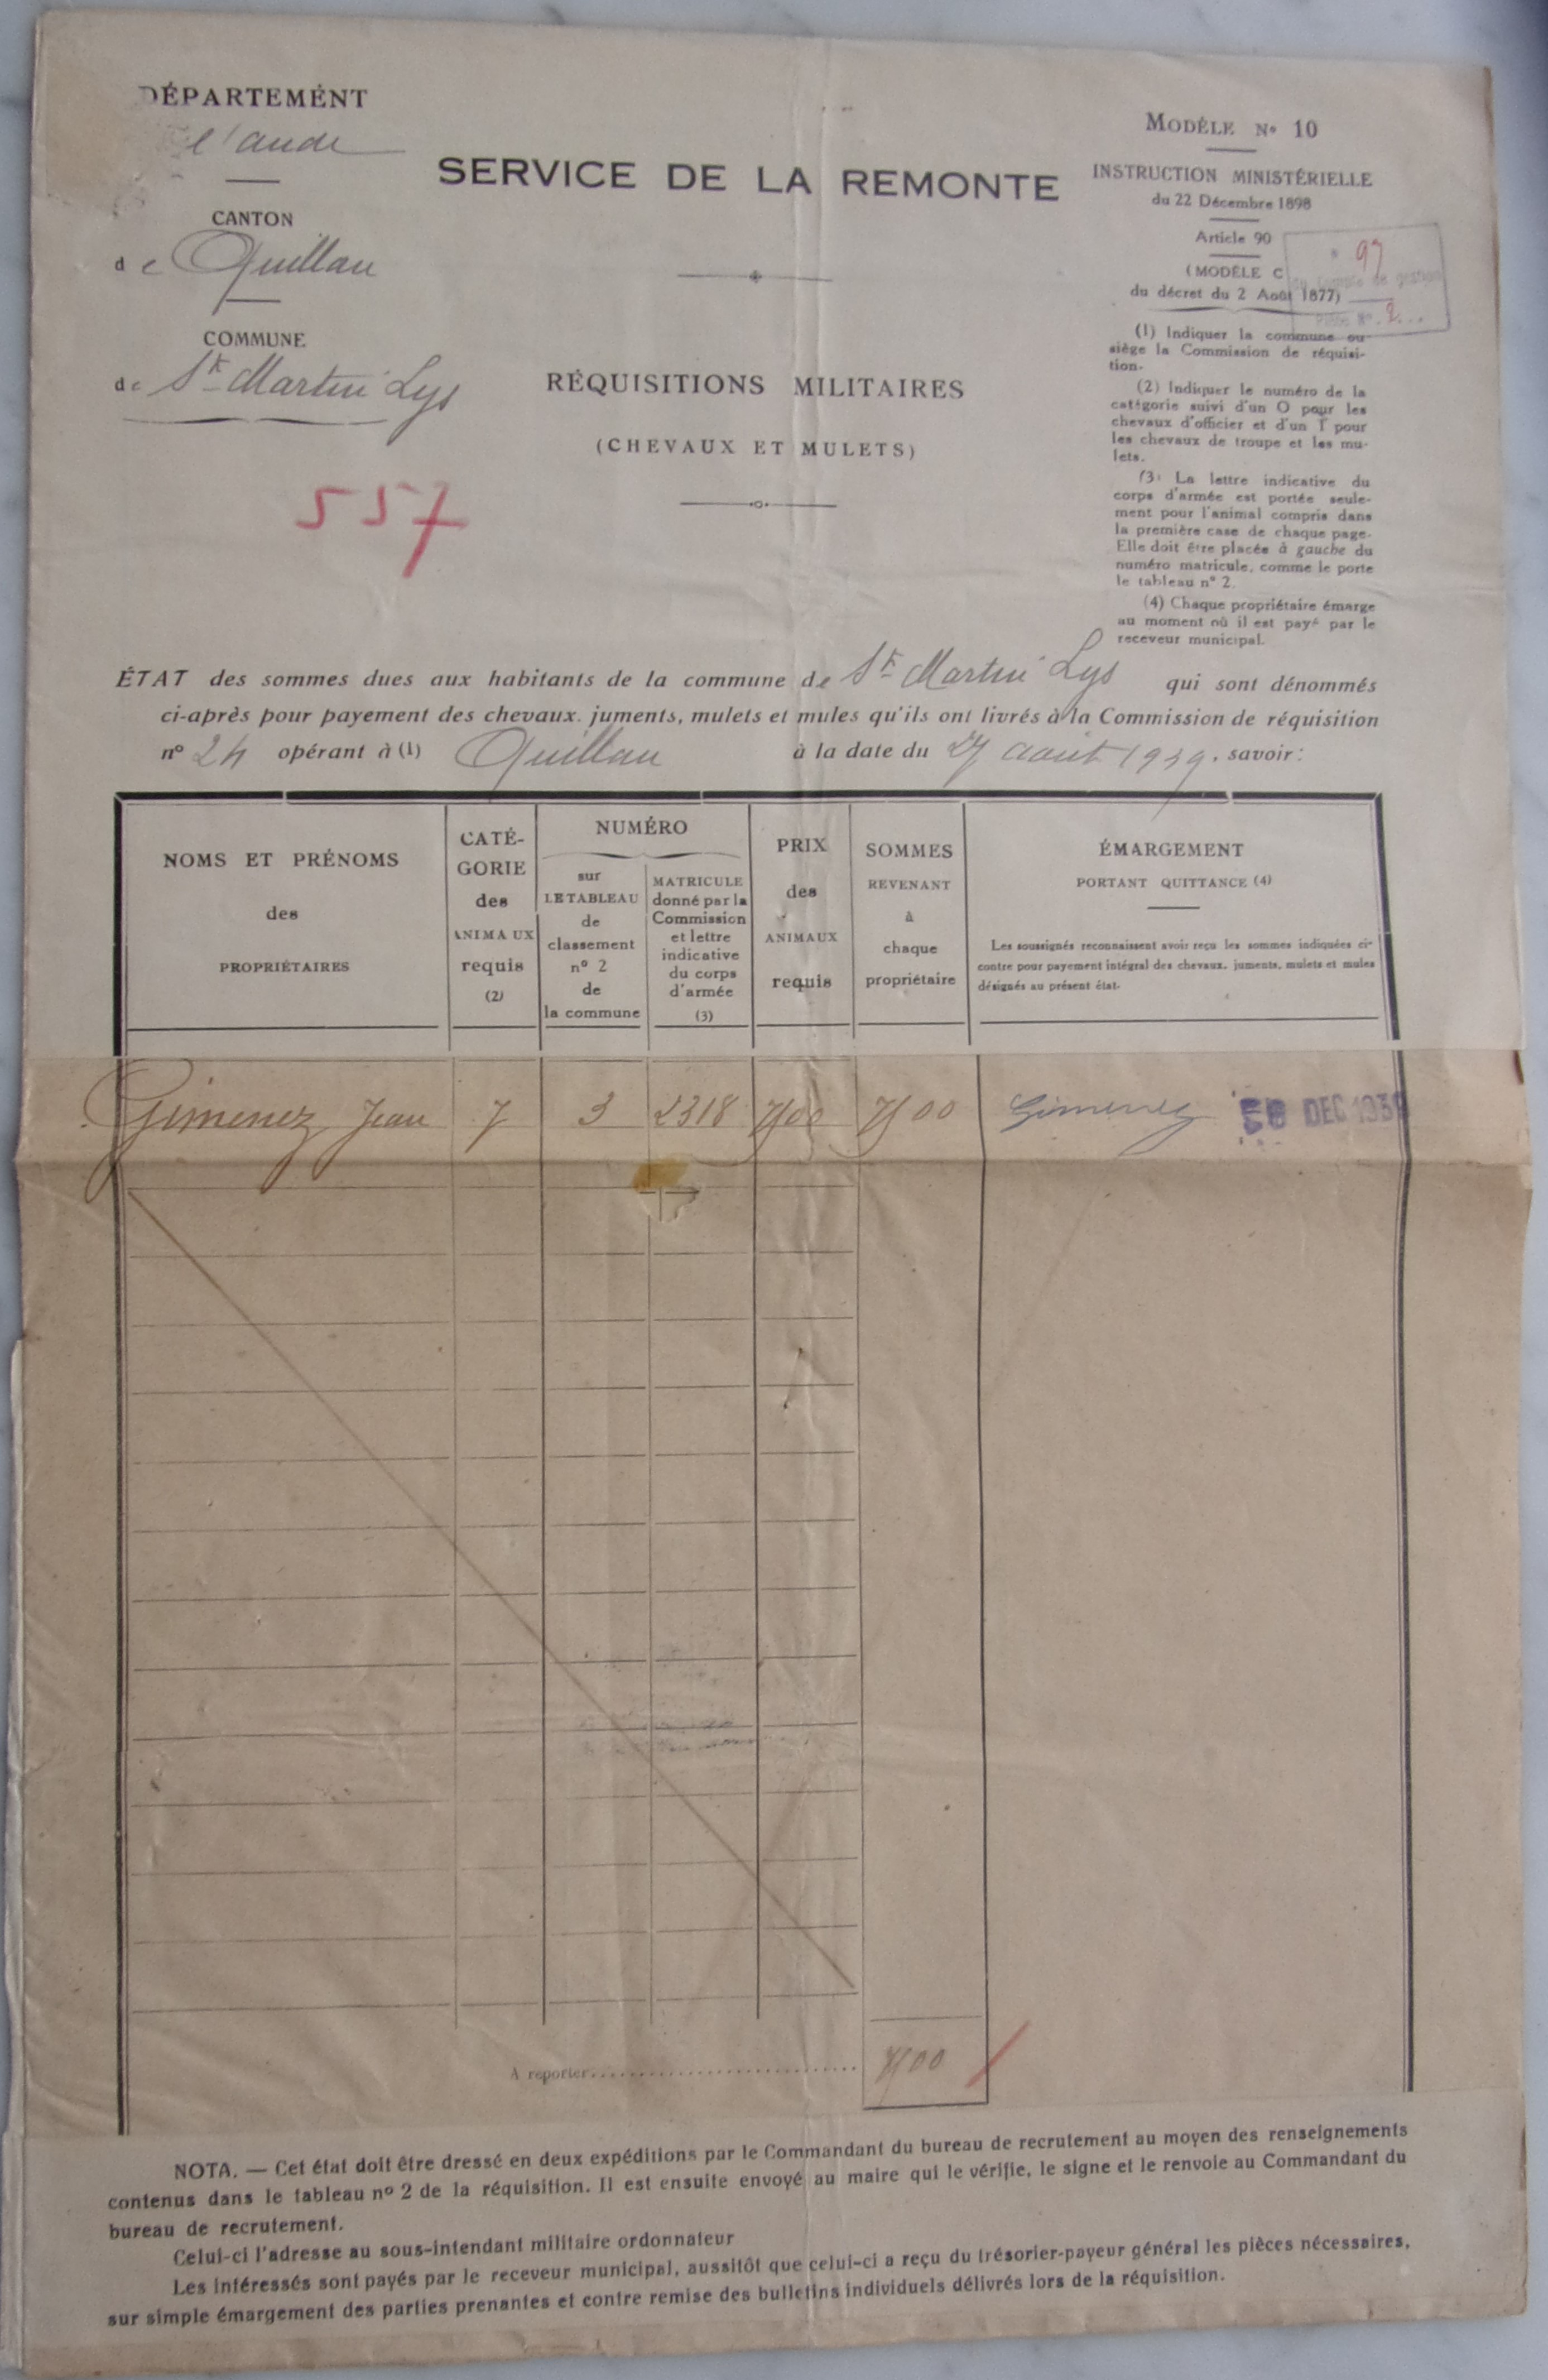 DÉPARTEMENT
l'aude
CANTON
de Quillan
COMMUNE
de St Martin Lys
557
SERVICE DE LA REMONTE
RÉQUISITIONS MILITAIRES
(CHEVAUX ET MULETS)
MODÈLE No 10
INSTRUCTION MINISTÉRIELLE
du 22 Décembre 1898
Article 90
(MODÈLE C
du décret du 2 Août 1877)
97
compte de gestion
Pièce No 2
(1) Indiquer la commune ou
siège la Commission de réquisi-
tion.
(2) Indiquer le numéro de la
catégorie suivi d'un O pour les
chevaux d'officier et d'un T pour
les chevaux de troupe et les mu-
lets.
(3) La lettre indicative du
corps d'armée est portée seule-
ment pour l'animal compris dans
la première case de chaque page.
Elle doit être placée à gauche du
numéro matricule, comme le porte
le tableau n° 2.
(4) Chaque propriétaire émarge
au moment où il est payé par le
receveur municipal.
ÉTAT des sommes dues aux habitants de la commune de St Martin Lys qui sont dénommés
ci-après pour payement des chevaux. juments, mulets et mules qu'ils ont livrés à la Commission de réquisition
n° 24 opérant à (1) Quillan à la date du 27 août 1939. savoir:
NOMS ET PRÉNOMS
des
PROPRIÉTAIRES
CATÉ-
GORIE
des
ANIMAUX
requis
(2)
NUMÉRO
sur
LE TABLEAU
de
classement
n° 2
de
la commune
MATRICULE
donné par la
Commission
et lettre
indicative
du corps
d'armée
(3)
PRIX
des
ANIMAUX
requis
SOMMES
REVENANT
à
chaque
propriétaire
ÉMARGEMENT
PORTANT QUITTANCE (4)
Les soussignés reconnaissent avoir reçu les sommes indiquées ci-
contre pour payement intégral des chevaux, juments, mulets et mules
désignés au présent état.
Gimenez Jean 7 3 2318 7500 7500 Gimenez DEC 1939
A reporter 7500
NOTA. — Cet état doit être dressé en deux expéditions par le Commandant du bureau de recrutement au moyen des renseignements
contenus dans le tableau no 2 de la réquisition. Il est ensuite envoyé au maire qui le vérifie, le signe et le renvoie au Commandant du
bureau de recrutement.
Celui-ci l'adresse au sous-intendant militaire ordonnateur
Les intéressés sont payés par le receveur municipal, aussitôt que celui-ci a reçu du trésorier-payeur général les pièces nécessaires,
sur simple émargement des parties prenantes et contre remise des bulletins individuels délivrés lors de la réquisition.